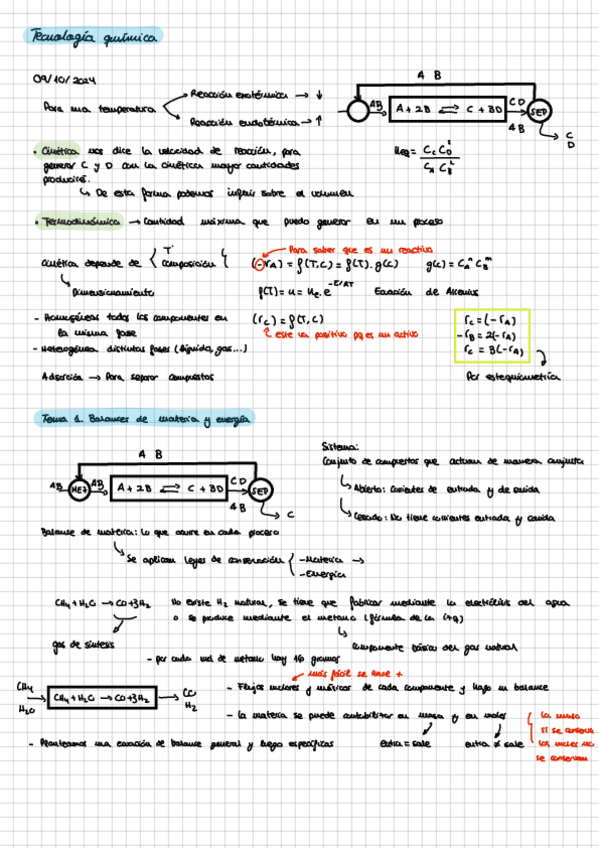 Tecnología química
09/10/2024
Para una temperatura
Reacción exotérmica → ↓
Reacción endotérmica → ↑
A B
AB
A + 2B ⇌ C + 3D
CD
4B
SEP
C
D
• Cinética nos dice la velocidad de reacción, para
generar C y D con la cinética mayor cantidades
produciré.
↳ De esta forma podemos influir sobre el volumen
• Termodinámica → Cantidad máxima que puedo generar en un proceso
Para saber que es un reactivo
cinética depende de { T composición }
(-rA) = f(T,C) = f(T).g(c) g(c) = CA^n CB^m
↳ Dimensionamiento
Ecuación de Arrenius
- Homogéneas todos los componentes en
la misma fase
(rC) = f(T,C)
↑ este va positivo pq es un activo
- Heterogénea distintas fases (líquido, gas...)
rC = (-rA)
-rB = 2(-rA)
rC = 3(-rA)
Adsorción → Para separar compuestos
Por estequiometría
Tema 1. Balances de materia y energía
A B
AB
AB
A + 2B ⇌ C + 3D
CD
4B
SEP
C
Sistema:
Conjunto de compuestos que actuan de manera conjunta
↳ Abierto: Corrientes de entrada y de salida
↳ Cerrado: No tiene corrientes entrada y salida
Balance de materia: lo que ocurre en cada proceso
↳ Se aplican leyes de conservación { - Materia →
- Energía
CH4 + H2O → CO + 3H2 No existe H2 natural, se tiene que fabricar mediante la electrólisis del agua
o se produce mediante el metano
gas de síntesis
↳ componente básico del gas natural
- por cada mol de metano hay 16 gramos
más fácil se hace +
CH4
H2O
CH4 + H2O → CO + 3H2
CO
H2
- Flujos molares y másicos de cada componente y hago un balance
- la materia se puede contabilizar en masa y en moles
entra = sale entra ≠ sale
la masa
si se conserva
los moles no
se conservan
- Planteamos una ecuación de balance general y luego específicas